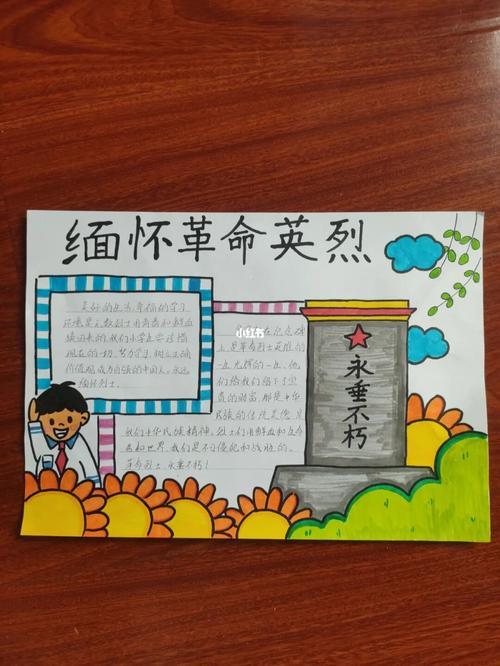 缅怀革命英烈
美好的生活,幸福的学习
环境是无数烈士用青春和鲜血
换回来的,我们小学生要珍惜
现在的一切,努力学习,树立正确
价值观,成为自强的中国人,永远
缅怀烈士。
在纪念碑
上,是革命烈士英雄的
一生,光辉的一生,他
们给我们留下了宝
贵的财富,那是中华
民族的
我们中华民族精神。烈士们用鲜血和生命
和世界,我们是不可侵犯和战胜的。
革命烈士,永垂不朽!
永垂不朽
小红书